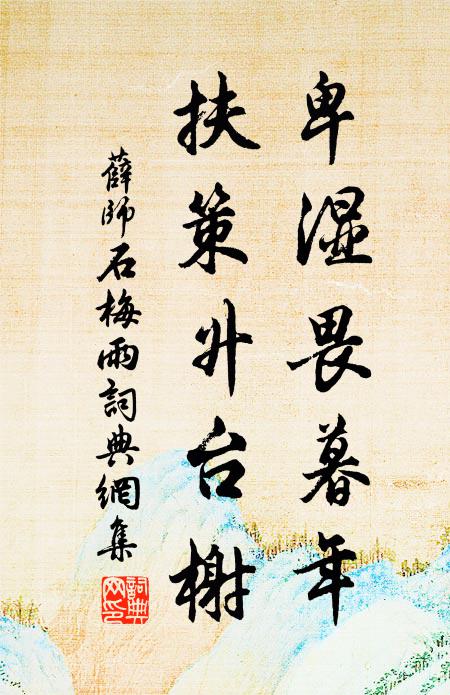 卑湿畏暮年
扶策升台榭
薛師石梅雨詞典網集
詞典網印